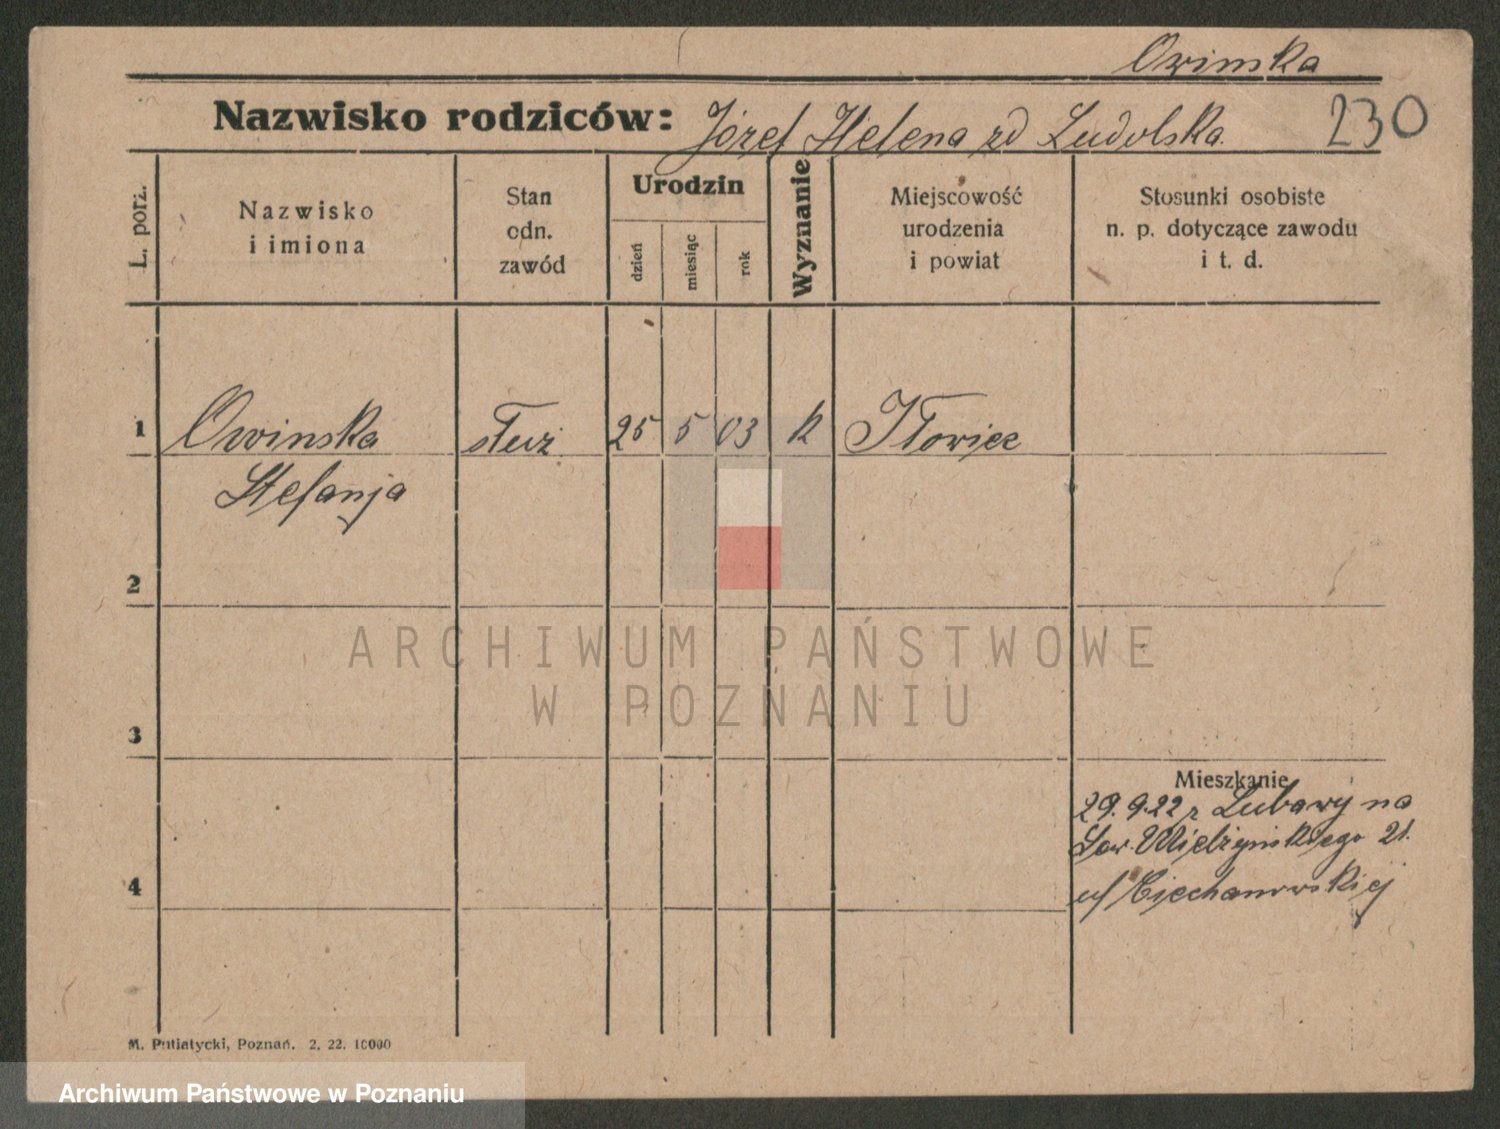 Owinska
Nazwisko rodziców: Józef Helena zd Ludolska 230
L. porz.
Nazwisko
i imiona
Stan
odn.
zawód
Urodzin
dzień
miesiąc
rok
Wyznanie
Miejscowość
urodzenia
i powiat
Stosunki osobiste
n. p. dotyczące zawodu
i t. d.
1 Owinska służ 25 5 03 k Iłowiec
Stefanja
2
ARCHIWUM PAŃSTWOWE
W POZNANIU
3
Mieszkanie
29.9.22 z Lubawy na
Mielżynskiego 21.
4
u/ Ciechanowskiej
M. Putiatycki, Poznań. 2. 22. 10000
Archiwum Państwowe w Poznaniu